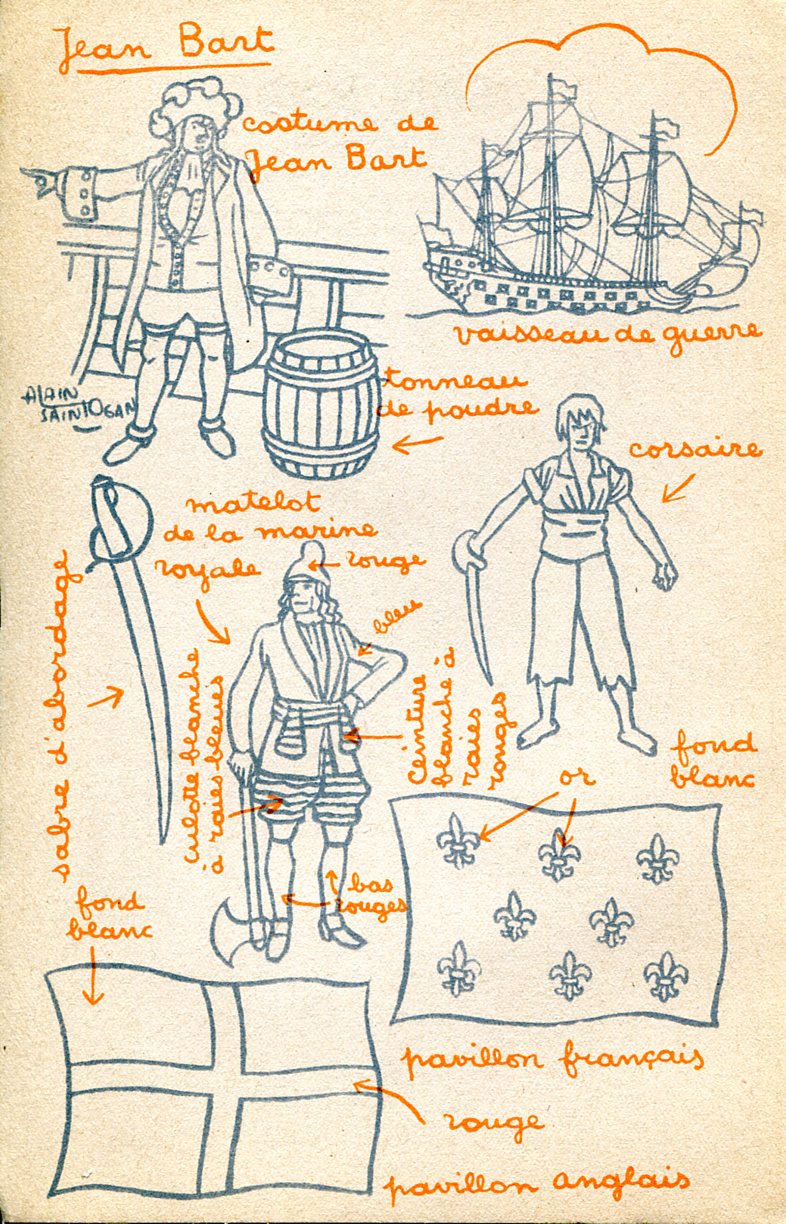 Jean Bart
costume de
Jean Bart
vaisseau de guerre
tonneau
de poudre
ALAIN
SAINT OGAN
corsaire
matelot
de la marine
royale
rouge
bleu
sabre d'abordage
culotte blanche
à raies bleues
ceinture
blanche à
raies
rouges
fond
blanc
or
bas
rouges
fond
blanc
pavillon français
rouge
pavillon anglais